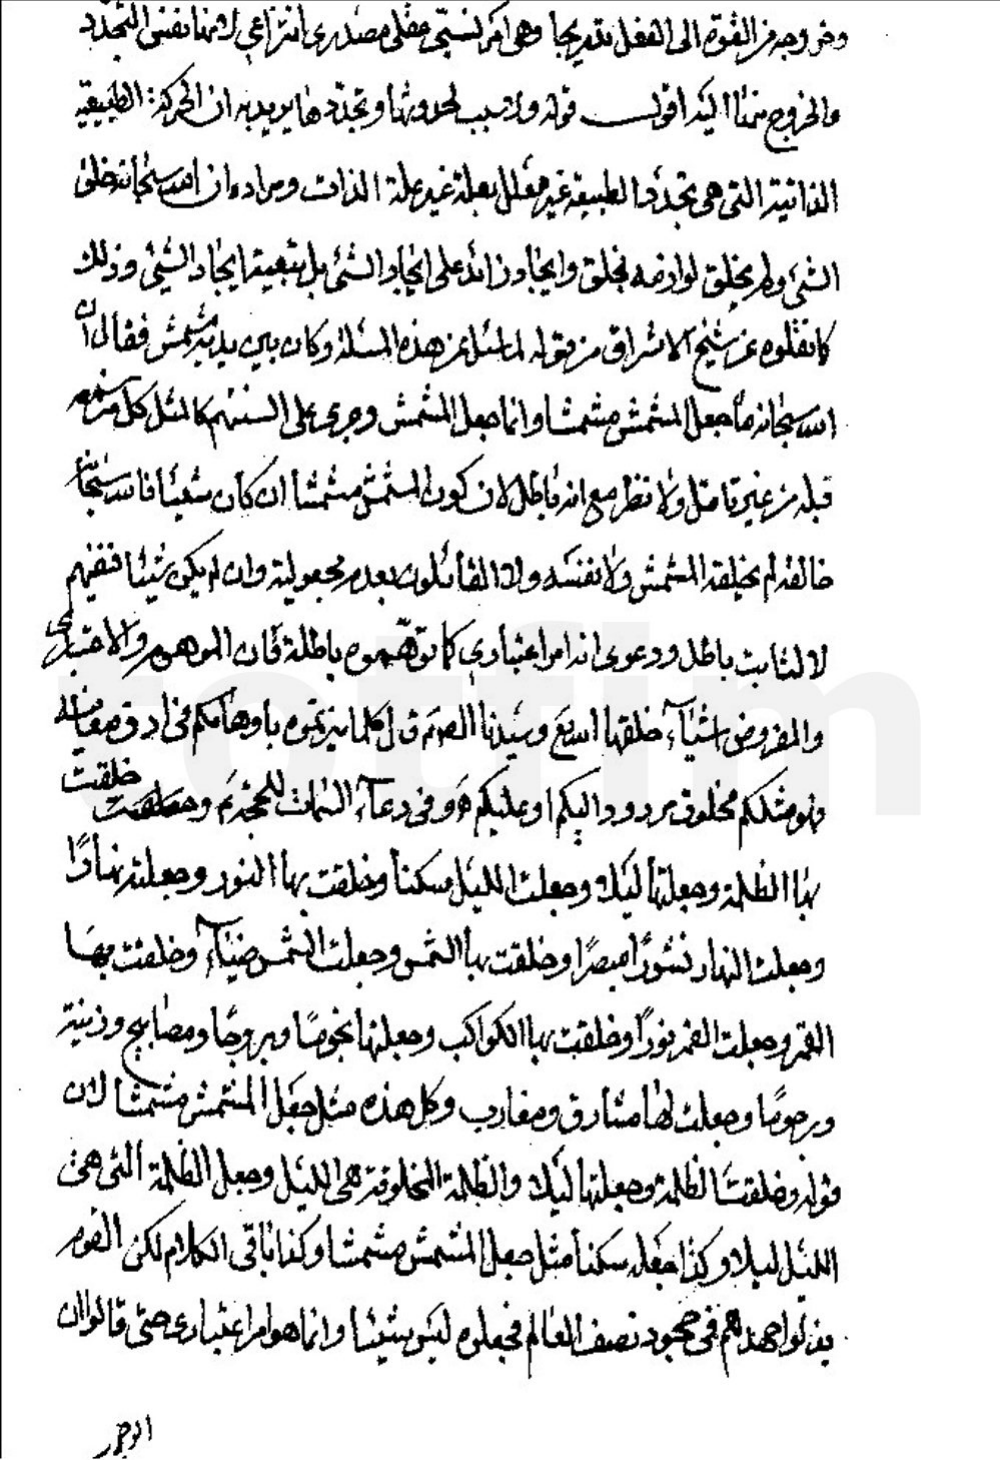 وخروجه من القوة الى الفعل تدريجا وهى امر نسبى عقلى مصدرى انتزاعي لانها نفس التجدد
والخروج منها اليه اقول قوله ولا سبب لحدوثها وتجددها يريد به ان الحركة الطبيعية
الذاتية التى هى تجدد الطبيعة غير معلل بعلة غير علة الذات ومراده ان الله سبحانه خلق
الشئ ولم يخلق لوازمه بخلق وايجاد زائد على ايجاد الشئ بل بتبعية ايجاد الشئ وذلك
كما نقلوه عن شيخ الاشراق من قوله لما سئل عن هذه المسئلة وكان بين يديه مشمش فقال ان
الله سبحانه ما جعل المشمش مشمشا وانما جعل المشمش وجرى على السنتهم كالمثل كل من
قبله من غير تامل ولا نظر مع انه باطل لان كون المشمش مشمشا ان كان شيئا فالله سبحانه
خالقه لم يخلقه المشمش ولا نفسه ولا القائلون بعدم مجعولية وان لم يكن شيئا فنفيهم
لا لثابت باطل ودعوى انه امر اعتبارى كما توهموه باطلة فان الموهوم والاعتبارى
والمفروض اشياء خلقها الله تع وسيدنا الصم ق ل كلما ميزتموه باوهامكم فى ادق معانيه
فهو مثلكم مخلوق مردود اليكم او عليكم هو وفى دعاء السمات للحجة ع وخلقت
بها الظلمة وجعلتها ليلا وجعلت الليل سكنا وخلقت بها النور وجعلته نهارا
وجعلت النهار نشورا مبصرا وخلقت بها الشمس وجعلت الشمس ضياء وخلقت بها
القمر وجعلت القمر نورا وخلقت بها الكواكب وجعلتها نجوما وبروجا ومصابيح وزينة
ورجوما وجعلت لها مشارق ومغارب وكل هذه مثل جعل المشمش مشمشا لان
قوله وخلقت الظلمة وجعلتها ليلا والظلمة المخلوقة هى الليل وجعل الظلمة التى هى
الليل ليلا وكذا جعله سكنا مثل جعل المشمش مشمشا وكذا باقى الكلام لكن القوم
بذلوا جهدهم فى جحود نصف العالم فجعلوه ليس شيئا وانما هو امر اعتبارى حتى قالوا ان
الوجود